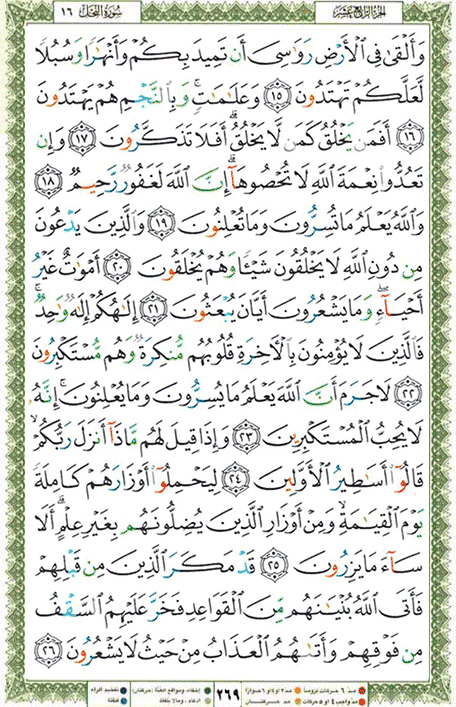 الجزء الرابع عشر
سورة النحل ١٦
وَأَلْقَىٰ فِي الْأَرْضِ رَوَاسِيَ أَن تَمِيدَ بِكُمْ وَأَنْهَارًا وَسُبُلًا
لَّعَلَّكُمْ تَهْتَدُونَ ١٥ وَعَلَامَاتٍ ۚ وَبِالنَّجْمِ هُمْ يَهْتَدُونَ
١٦ أَفَمَن يَخْلُقُ كَمَن لَّا يَخْلُقُ ۗ أَفَلَا تَذَكَّرُونَ ١٧ وَإِن
تَعُدُّوا نِعْمَةَ اللَّهِ لَا تُحْصُوهَا ۗ إِنَّ اللَّهَ لَغَفُورٌ رَّحِيمٌ ١٨
وَاللَّهُ يَعْلَمُ مَا تُسِرُّونَ وَمَا تُعْلِنُونَ ١٩ وَالَّذِينَ يَدْعُونَ
مِن دُونِ اللَّهِ لَا يَخْلُقُونَ شَيْئًا وَهُمْ يُخْلَقُونَ ٢٠ أَمْوَاتٌ غَيْرُ
أَحْيَاءٍ ۖ وَمَا يَشْعُرُونَ أَيَّانَ يُبْعَثُونَ ٢١ إِلَٰهُكُمْ إِلَٰهٌ وَاحِدٌ ۚ
فَالَّذِينَ لَا يُؤْمِنُونَ بِالْآخِرَةِ قُلُوبُهُم مُّنكِرَةٌ وَهُم مُّسْتَكْبِرُونَ
٢٢ لَا جَرَمَ أَنَّ اللَّهَ يَعْلَمُ مَا يُسِرُّونَ وَمَا يُعْلِنُونَ ۚ إِنَّهُ
لَا يُحِبُّ الْمُسْتَكْبِرِينَ ٢٣ وَإِذَا قِيلَ لَهُم مَّاذَا أَنزَلَ رَبُّكُمْ ۙ
قَالُوا أَسَاطِيرُ الْأَوَّلِينَ ٢٤ لِيَحْمِلُوا أَوْزَارَهُمْ كَامِلَةً
يَوْمَ الْقِيَامَةِ ۙ وَمِنْ أَوْزَارِ الَّذِينَ يُضِلُّونَهُم بِغَيْرِ عِلْمٍ ۗ أَلَا
سَاءَ مَا يَزِرُونَ ٢٥ قَدْ مَكَرَ الَّذِينَ مِن قَبْلِهِمْ
فَأَتَى اللَّهُ بُنْيَانَهُم مِّنَ الْقَوَاعِدِ فَخَرَّ عَلَيْهِمُ السَّقْفُ
مِن فَوْقِهِمْ وَأَتَاهُمُ الْعَذَابُ مِنْ حَيْثُ لَا يَشْعُرُونَ ٢٦
٢٦٩